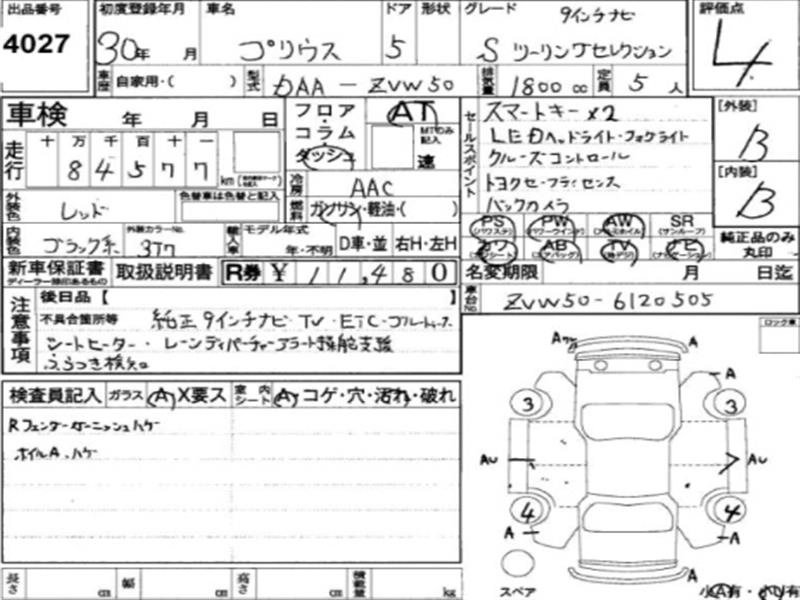 出品番号 初度登録年月 車名 ドア 形状 グレード 9インチナビ 評価点
4027 30年 月 プリウス 5 S ツーリングセレクション 4
車歴 自家用・( ) 型式 DAA-ZVW50 排気量 1800 cc 定員 5 人
車検 年 月 日 フロア AT セールスポイント スマートキー×2 [外装]
コラム MTのみ記入 LEDヘッドライト・フォグライト B
走行 十 万 千 百 十 一 ダッシュ 速 クルーズコントロール [内装]
8 4 5 7 7 km 冷房 AAC トヨタセーフティセンス B
外装色 レッド 色替車は色替と記入 燃料 ガソリン・軽油・( ) バックカメラ
PS (パワステ) PW (パワーウインド) AW (アルミホイル) SR (サンルーフ) 純正品のみ丸印
内装色 ブラック系 外装カラーNo. 3T7 輸入車 モデル年式 年・不明 D車・並 右H・左H カワ (シート) AB (エアバッグ) TV (地デジ) ナビ (ナビゲーション)
新車保証書 ディーラー捺印あるもの 取扱説明書 R券 ¥ 11,480 名変期限 月 日迄
注意事項 後日品【 】 車台No. ZVW50-6120505
不具合箇所等 純正9インチナビ・TV・ETC・ブルートゥース
シートヒーター・レーンディパーチャーアラート操舵支援
ふらつき検知
ロック車
検査員記入 ガラス (A) X要ス 室内シート (A) コゲ・穴・汚れ・破れ
Rフェンダーガーニッシュハゲ
ホイルA、ハゲ
A A
A
3 3
AU AU
4 4
A A
A
スペア
小A有・小U有
長さ cm 幅 cm 高さ cm 積載量 kg